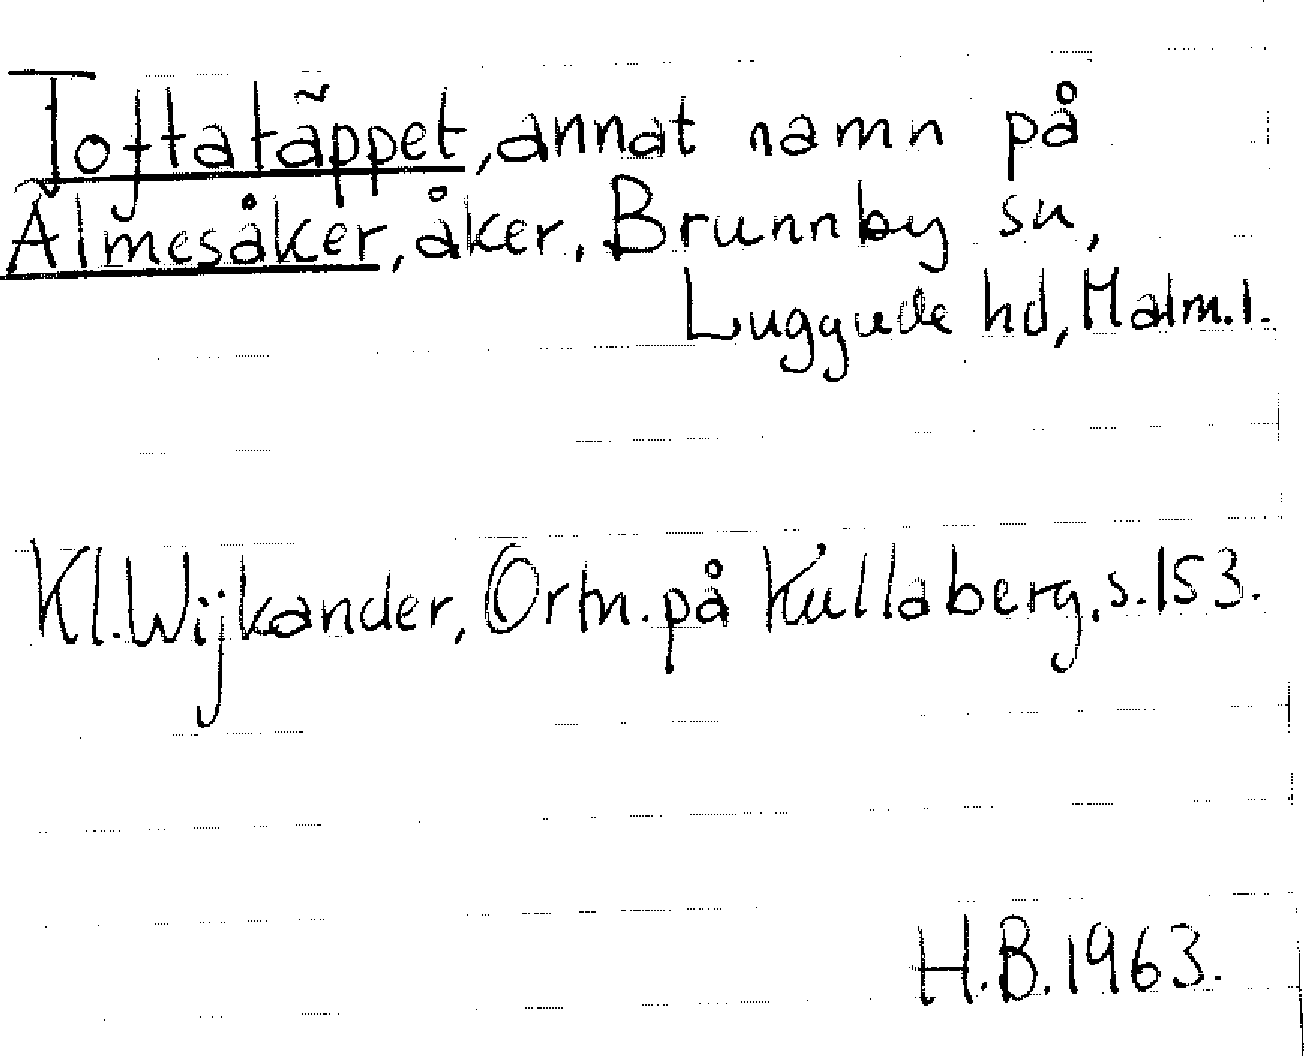 Toftatäppet, annat namn på
Älmesåker, åker, Brunnby sn,
Luggude hd, Malm.l.
Kl. Wijkander, Ortn. på Kullaberg, s. 153.
H.B. 1963.